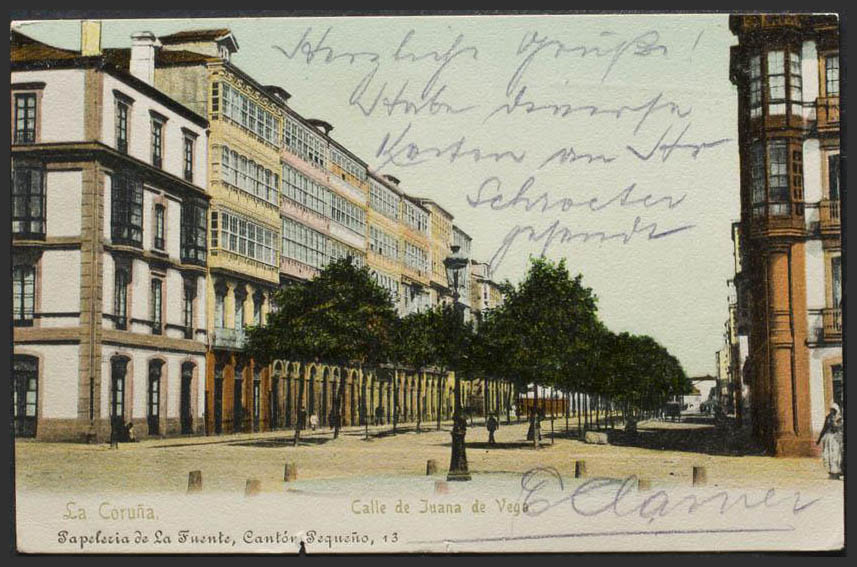 Herzliche Grüße!
Habe diverse
Karten an Hr
Schroeter
gesandt
La Coruña.
Calle de Juana de Vega.
Papeleria de La Fuente, Cantón Pequeño, 13